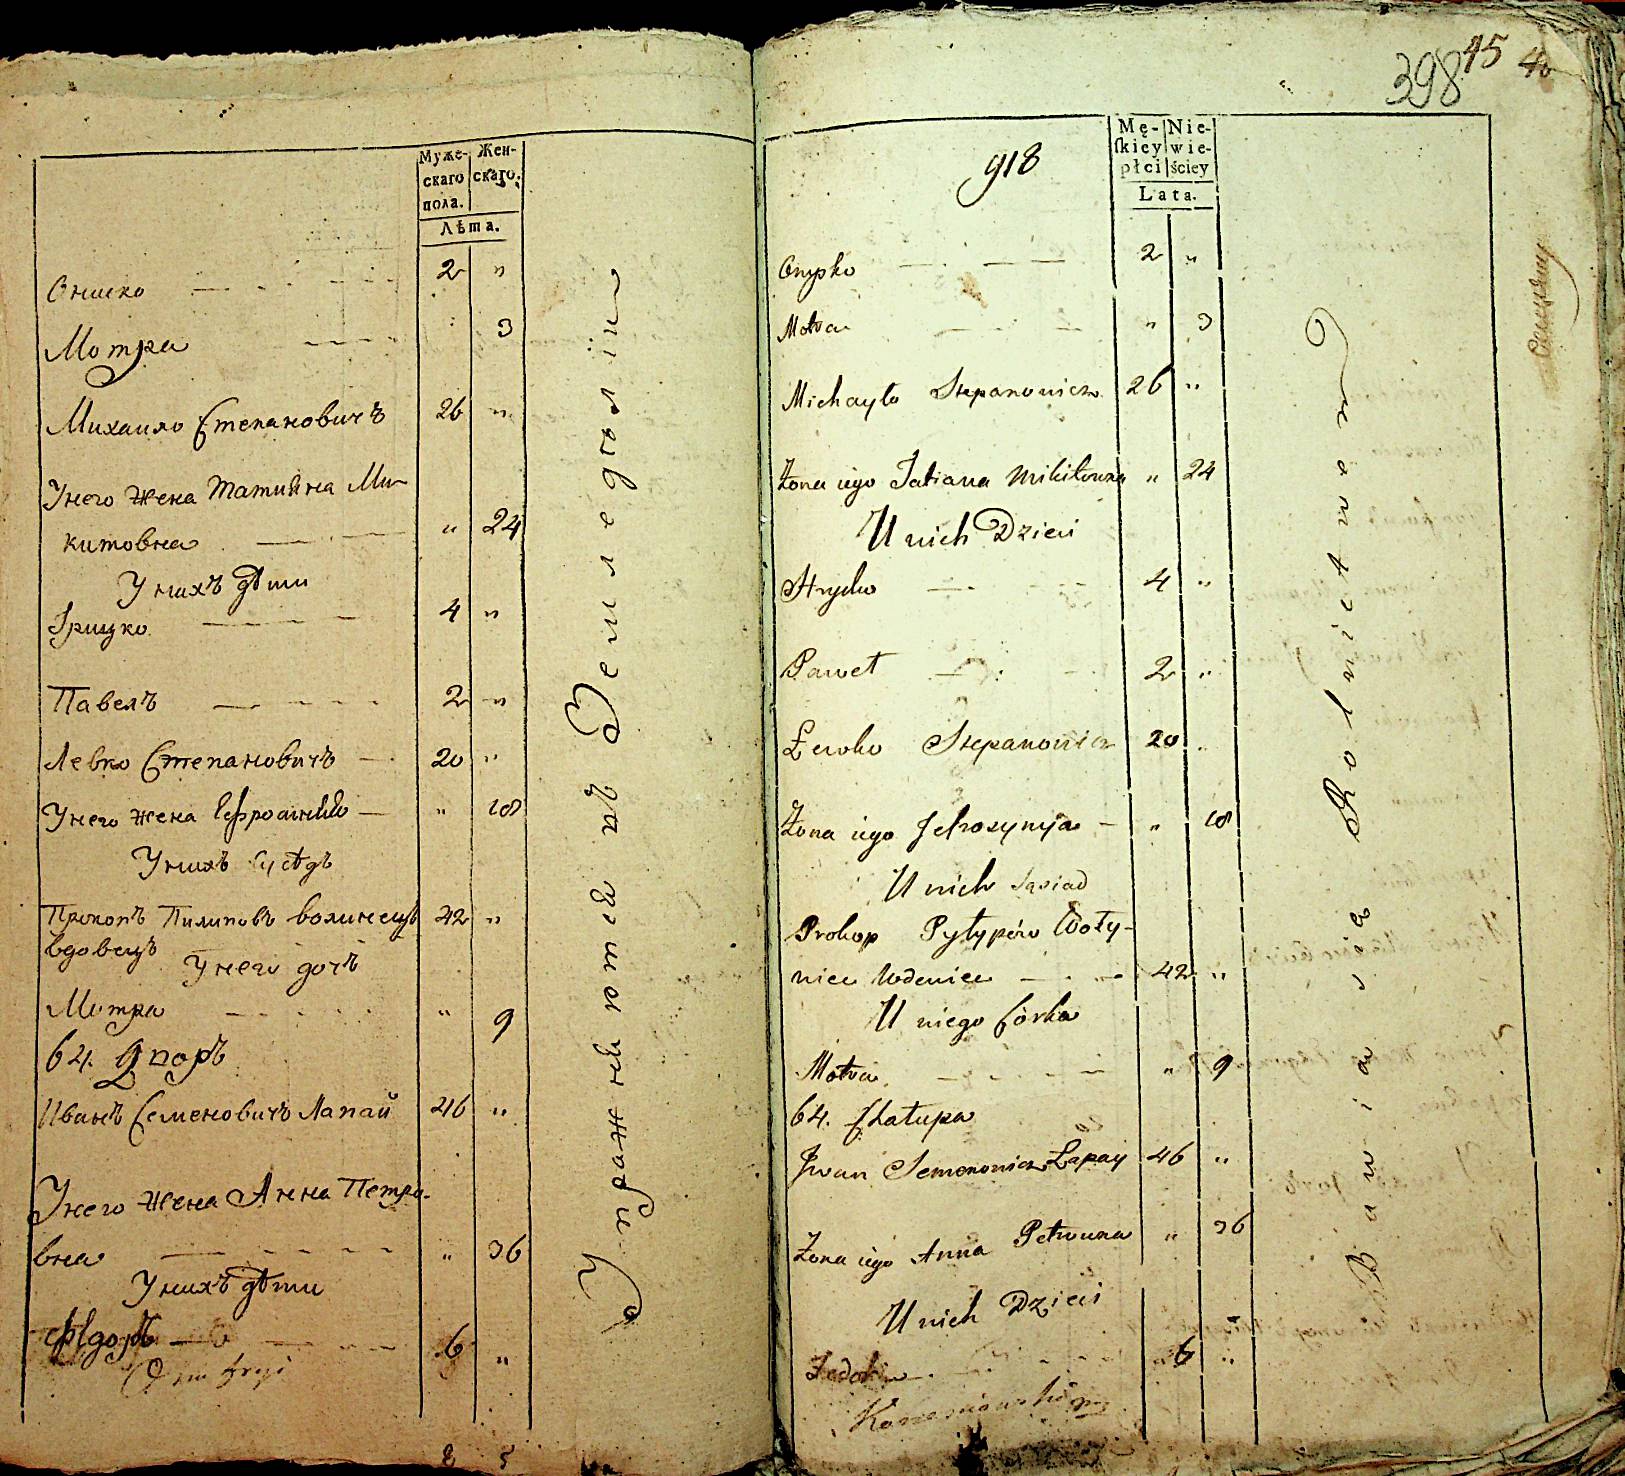 Муже-
скаго
пола.
Жен-
скаго.
Лѣта.
Ониско 2 "
Мотра 3
Михаило Степановичъ 26 "
Унего жена Татияна Ми-
китовна " 24
Унихъ дѣти
Грицко 4 "
Павелъ 2 "
Левко Степановичъ 20 "
Унего жена " 18
Унихъ Сусѣдъ
Прокопъ Пилиповъ волинецъ 42 "
вдовецъ
Унего дочъ
Мотра " 9
64. Дворъ
Иванъ Семеновичъ Лапай 46 "
Унего жена Анна Петро-
вна " 36
Унихъ дѣти
Федоръ 6 "
8 5
Упражняются въ Земледѣліи
398 45 40
918
Mę-
skiey
płci
Nie-
wie-
ściey
Lata.
Onysko 2 "
Motra " 3
Michayło Stepanowicz 26 "
Żona iego Tatiana Mikitowna " 24
U nich Dzieci
Hryćko 4 "
Paweł 2 "
Łewko Stepanowicz 20 "
Żona iego Jefrosynija " 18
U nich Sąsiad
Prokop Pyłypów Woły-
niec wdowiec 42 "
U niego Córka
Motra " 9
64. Chałupa
Jwan Semenowicz Łapay 46 "
Żona iego Anna Petrowna " 36
U nich Dzieci
Fedor 6 "
Bawią się Rolnictwem